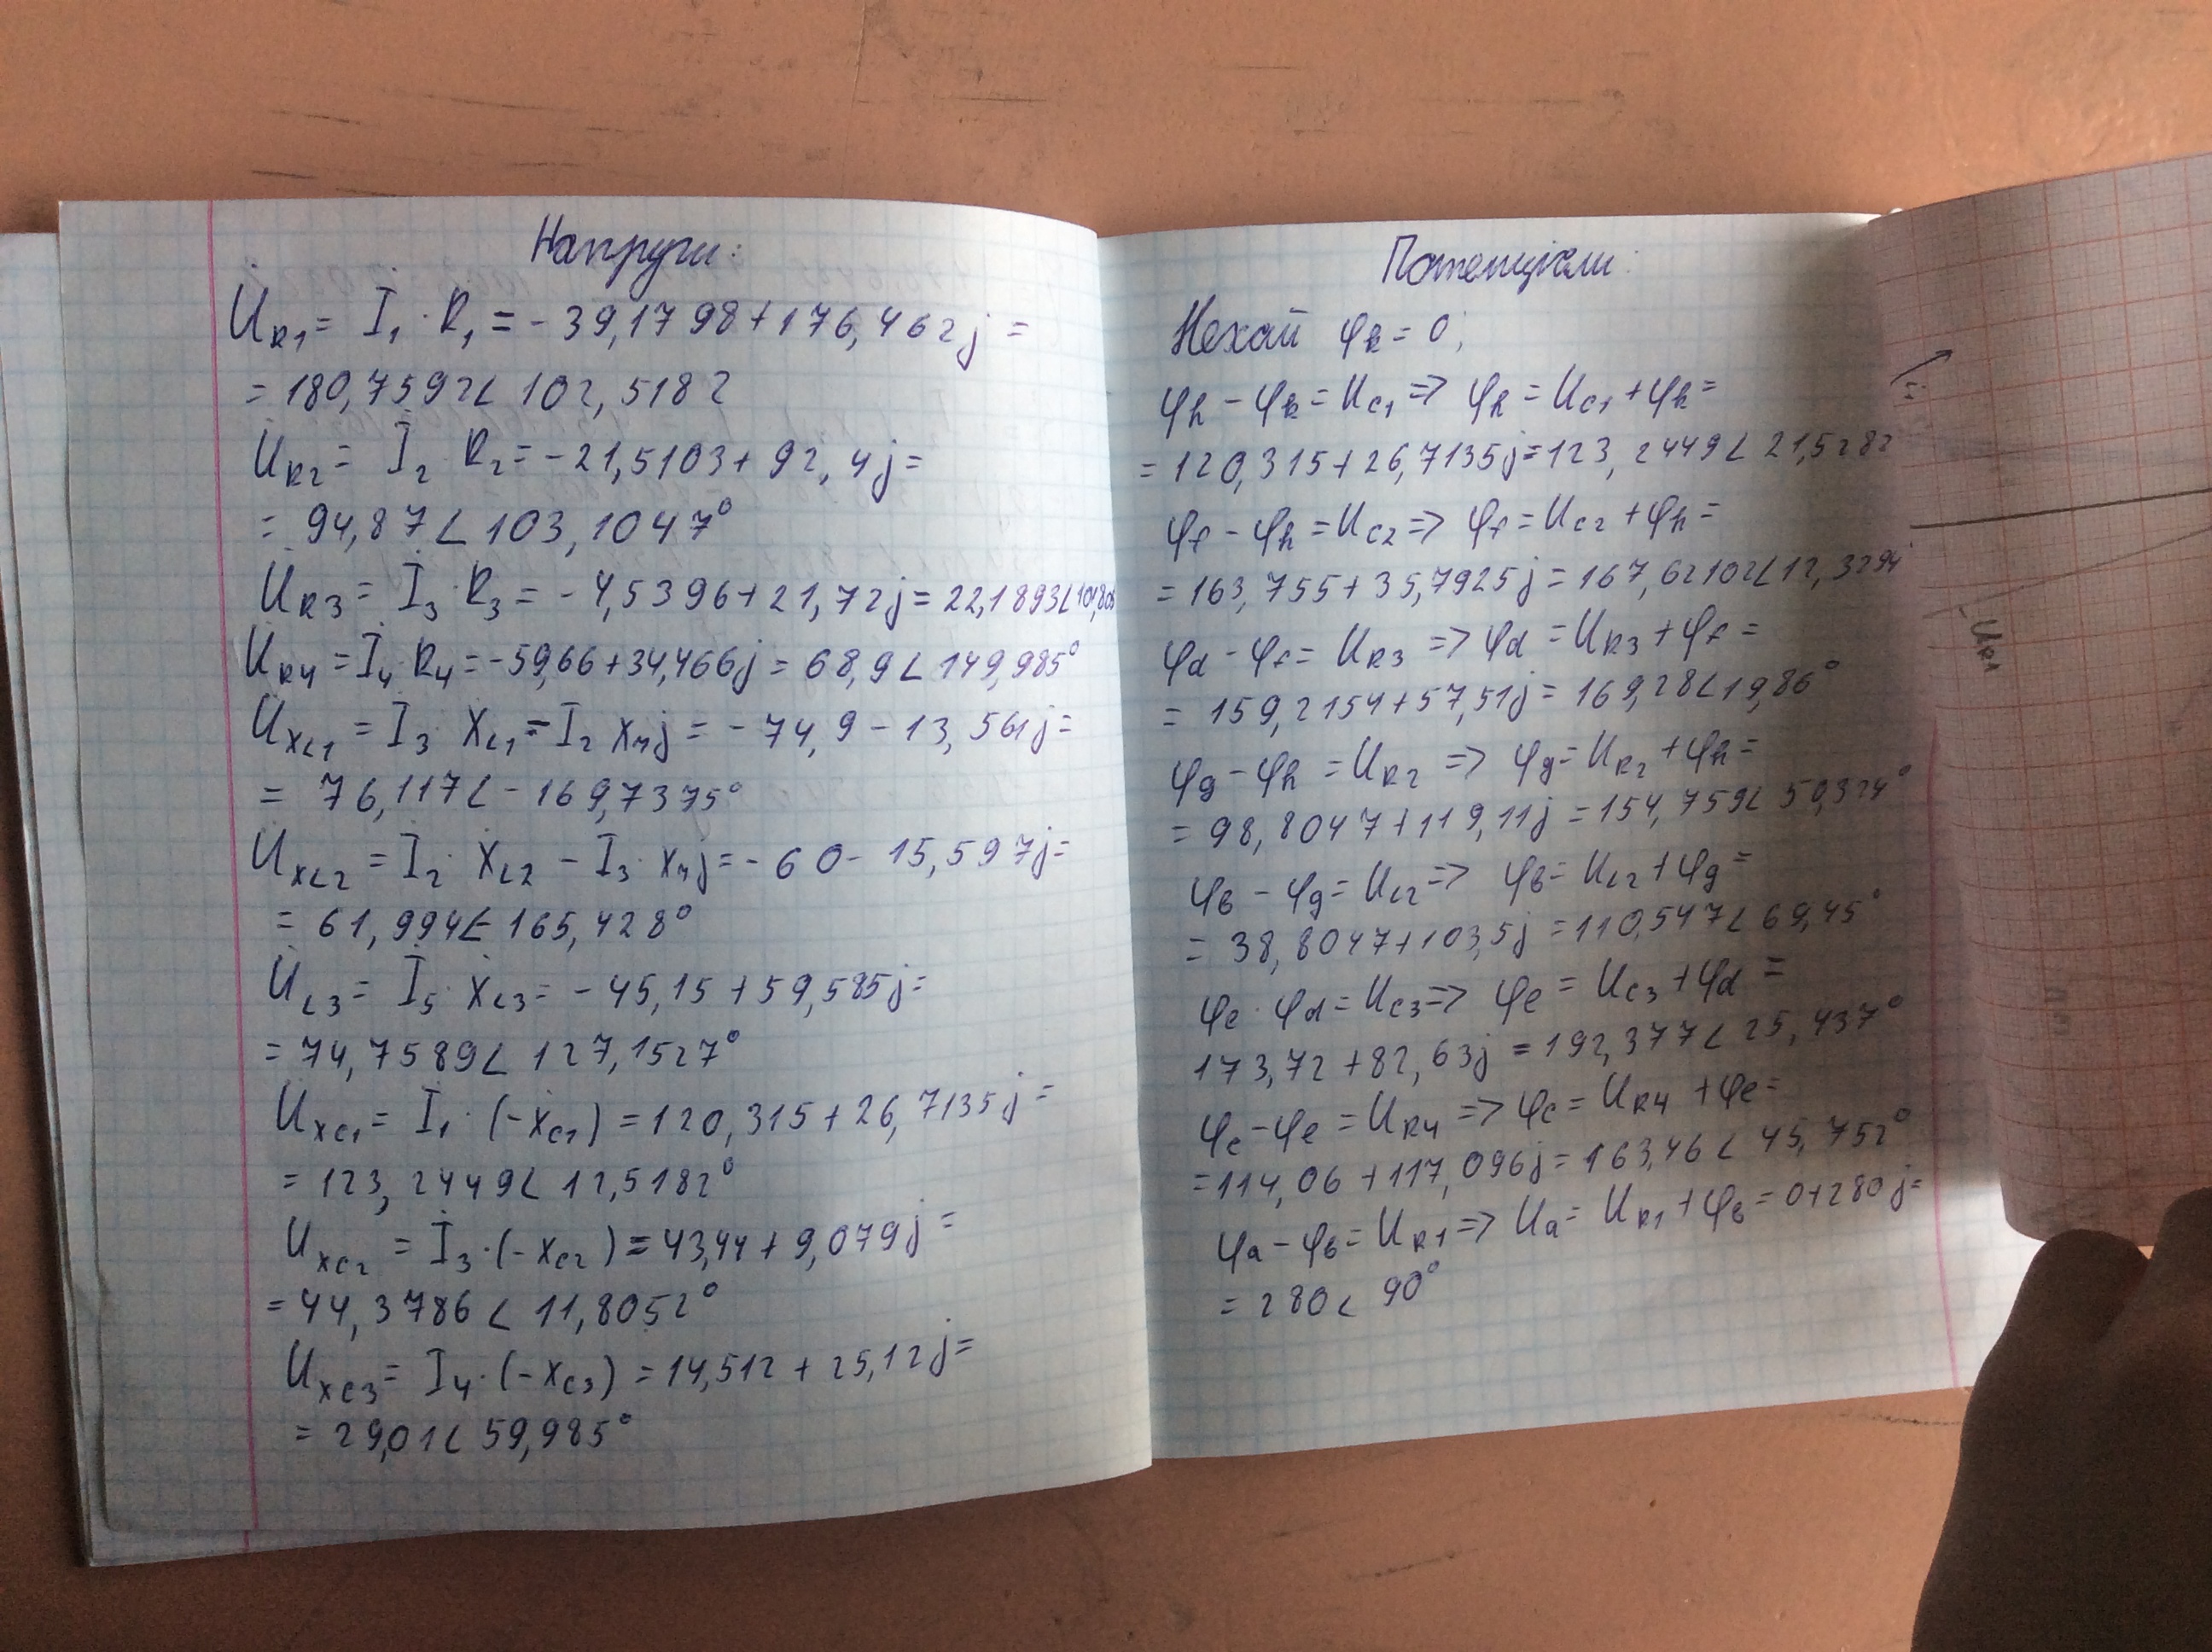 Напруги:
U̇R1 = İ1 · R1 = -39,1798+176,462j =
= 180,7592∠102,5182
U̇R2 = İ2 · R2 = -21,5103+92,4j =
= 94,87∠103,1047°
U̇R3 = İ3 · R3 = -4,5396+21,72j = 22,1893∠101,805
U̇R4 = İ4 · R4 = -59,66+34,466j = 68,9∠149,985°
U̇XL1 = İ3 · XL1 = I2 XMj = -74,9-13,561j =
= 76,117∠-169,7375°
U̇XL2 = İ2 · XL2 - I3 · XMj = -60-15,597j =
= 61,994∠-165,428°
U̇L3 = İ5 · XL3 = -45,15+59,585j =
= 74,7589∠127,1527°
U̇XC1 = İ1 · (-XC1) = 120,315+26,7135j =
= 123,2449∠12,5182°
U̇XC2 = İ3 · (-XC2) = 43,44+9,079j =
= 44,3786∠11,8052°
U̇XC3 = İ4 · (-XC3) = 14,512+25,12j =
= 29,01∠59,985°
Потенціали:
Нехай φk = 0;
φh - φk = UC1 => φh = UC1 + φk =
= 120,315+26,7135j = 123,2449∠21,5282
φf - φh = UC2 => φf = UC2 + φh =
= 163,755+35,7925j = 167,62102∠12,3294
φd - φf = UR3 => φd = UR3 + φf =
= 159,2154+57,51j = 169,28∠19,86°
φg - φh = UR2 => φg = UR2 + φh =
= 98,8047+119,11j = 154,759∠50,324°
φb - φg = UL2 => φb = UL2 + φg =
= 38,8047+103,5j = 110,547∠69,45°
φe - φd = UC3 => φe = UC3 + φd =
173,72+82,63j = 192,377∠25,437°
φc - φe = UR4 => φc = UR4 + φe =
= 114,06+117,096j = 163,46∠45,752°
φa - φb = UR1 => Ua = UR1 + φb = 0+280j =
= 280∠90°
-UR1